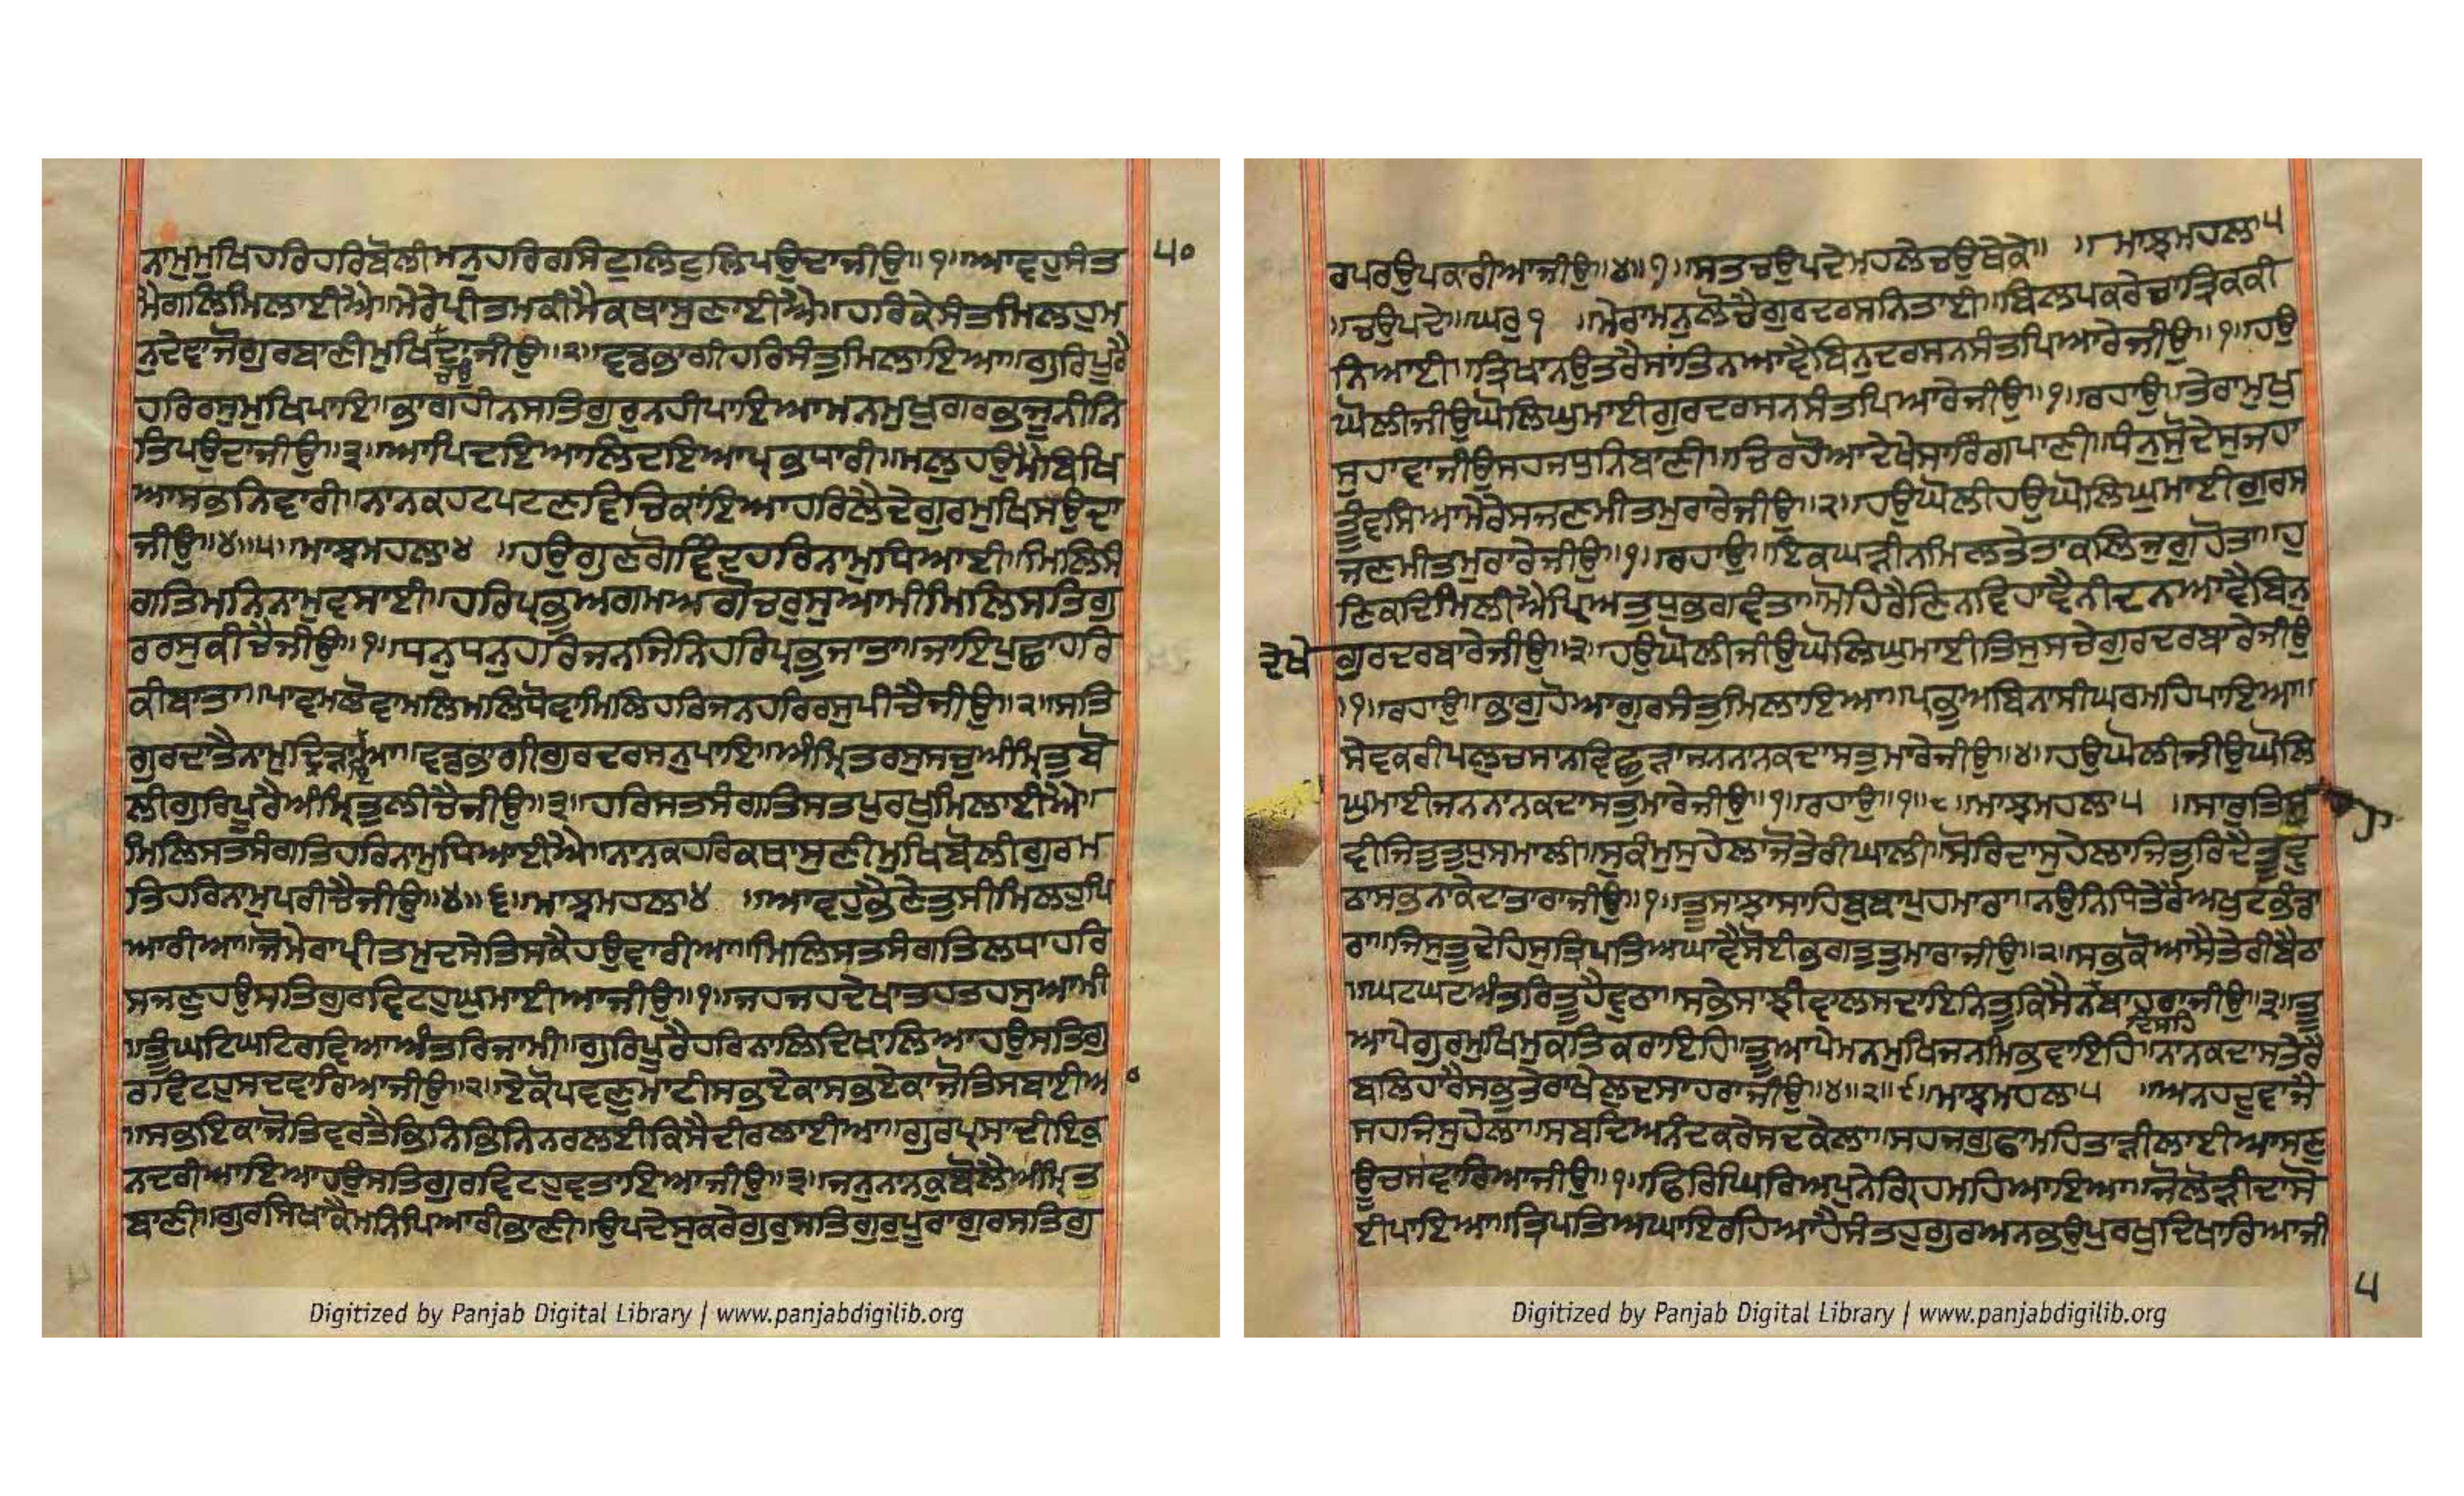 ਨਾਮੁਮੁਖਿਹਰਿਹਰਿਬੋਲੀਮਨੁਹਰਿਰਸਿਟੁਲਿਟੁਲਿਪਉਦਾਜੀਉ॥੧॥ਆਵਹੁਸੰਤ
੫੦
ਮੈਗਲਿਮਿਲਾਈਐ॥ਮੇਰੇਪ੍ਰੀਤਮਕੀਮੈਕਥਾਸੁਣਾਈਐ॥ਹਰਿਕੇਸੰਤਮਿਲਹੁਮ
ਨੁਦੇਵਾਜੋਗੁਰਬਾਣੀਮੁਖਿਚਉਦਾਜੀਉ॥੨॥ਵਡਭਾਗੀਹਰਿਸੰਤੁਮਿਲਾਇਆ॥ਗੁਰਿਪੂਰੈ
ਹਰਿਰਸੁਮੁਖਿਪਾਇ॥ਭਾਗਹੀਨਸਤਿਗੁਰੁਨਹੀਪਾਇਆਮਨਮੁਖੁਗਰਭਜੂਨੀਨਿ
ਤਿਪਉਦਾਜੀਉ॥੩॥ਆਪਿਦਇਆਲਿਦਇਆਪ੍ਰਭਧਾਰੀ॥ਮਲੁਹਉਮੈਬਿਖਿ
ਆਸਭਨਿਵਾਰੀ॥ਨਾਨਕਹਟਪਟਣਵਿਚਿਕਾਂਇਆਹਰਿਲੈਦੇਗੁਰਮੁਖਿਸਉਦਾ
ਜੀਉ॥੪॥੫॥ਮਾਝਮਹਲਾ੪ ॥ਹਉਗੁਣਗੋਵਿੰਦਹਰਿਨਾਮੁਧਿਆਈ॥ਮਿਲਿਸੰ
ਗਤਿਮਨਿਨਾਮੁਵਸਾਈ॥ਹਰਿਪ੍ਰਭੁਅਗਮਅਗੋਚਰੁਸੁਆਮੀਮਿਲਿਸਤਿਗੁ
ਰਰਸੁਕੀਚੈਜੀਉ॥੧॥ਧਨੁਧਨੁਹਰਿਜਨਜਿਨਿਹਰਿਪ੍ਰਭੁਜਾਤਾ॥ਜਾਇਪੁਛਾਹਰਿ
ਕੀਬਾਤਾ॥ਪਾਵਮਲੋਵਾਮਲਿਮਲਿਧੋਵਾਮਿਲਿਹਰਿਜਨਹਰਿਰਸੁਪੀਚੈਜੀਉ॥੨॥ਸਤਿ
ਗੁਰਦਾਤੈਨਾਮੁਦਿੜਾਇਆ॥ਵਡਭਾਗੀਗੁਰਦਰਸਨੁਪਾਇ॥ਅੰਮ੍ਰਿਤਰਸੁਸਚੁਅੰਮ੍ਰਿਤੁਬੋ
ਲੀਗੁਰਿਪੂਰੈਅੰਮ੍ਰਿਤੁਲੀਚੈਜੀਉ॥੩॥ਹਰਿਸਤਸੰਗਤਿਸਤਪੁਰਖੁਮਿਲਾਈਐ॥
ਮਿਲਿਸਤਸੰਗਤਿਹਰਿਨਾਮੁਧਿਆਈਐ॥ਨਾਨਕਹਰਿਕਥਾਸੁਣੀਮੁਖਿਬੋਲੀਗੁਰਮ
ਤਿਹਰਿਨਾਮੁਪਰੀਚੈਜੀਉ॥੪॥੬॥ਮਾਝਮਹਲਾ੪ ॥ਆਵਹੁਭੈਣੇਤੁਸੀਮਿਲਹੁਪਿ
ਆਰੀਆ॥ਜੋਮੇਰਾਪ੍ਰੀਤਮੁਦਸੇਤਿਸਕੈਹਉਵਾਰੀਆ॥ਮਿਲਿਸਤਸੰਗਤਿਲਧਾਹਰਿ
ਸਜਣੁਹਉਸਤਿਗੁਰਵਿਟਹੁਘੁਮਾਈਆਜੀਉ॥੧॥ਜਹਜਹਦੇਖਾਤਹਤਹਸੁਆਮੀ
॥ਤੂੰਘਟਿਘਟਿਰਵਿਆਅੰਤਰਿਜਾਮੀ॥ਗੁਰਿਪੂਰੈਹਰਿਨਾਲਿਦਿਖਾਲਿਆਹਉਸਤਿਗੁ
ਰਵਿਟਹੁਸਦਵਾਰਿਆਜੀਉ॥੨॥ਏਕੋਪਵਣੁਮਾਟੀਸਭਏਕਾਸਭਏਕਾਜੋਤਿਸਬਾਈਆ
॥ਸਭਇਕਾਜੋਤਿਵਰਤੈਭਿਨਿਭਿਨਿਨਰਲਈਕਿਸੈਦੀਰਲਾਈਆ॥ਗੁਰਪ੍ਰਸਾਦੀਇਕੁ
ਨਦਰੀਆਇਆਹਉਸਤਿਗੁਰਵਿਟਹੁਵਤਾਇਆਜੀਉ॥੩॥ਜਨੁਨਾਨਕੁਬੋਲੈਅੰਮ੍ਰਿਤ
ਬਾਣੀ॥ਗੁਰਸਿਖਾਕੈਮਨਿਪਿਆਰੀਭਾਣੀ॥ਉਪਦੇਸੁਕਰੇਗੁਰੁਸਤਿਗੁਰੁਪੂਰਾਗੁਰਸਤਿਗੁ
Digitized by Panjab Digital Library | www.panjabdigilib.org
ਰਪਰਉਪਕਾਰੀਆਜੀਉ॥੪॥੭॥ਸਤਚਉਪਦੇਮਹਲੇਚਉਥੇਕੇ॥ ॥ਮਾਝਮਹਲਾ੫
॥ਚਉਪਦੇ॥ਘਰੁ੧ ॥ਮੇਰਾਮਨੁਲੋਚੈਗੁਰਦਰਸਨਿਤਾਈ॥ਬਿਲਪਕਰੇਚਾਤ੍ਰਿਕਕੀ
ਨਿਆਈ॥ਤ੍ਰਿਖਾਨਉਤਰੈਸਾਂਤਿਨਆਵੈਬਿਨੁਦਰਸਨਸੰਤਪਿਆਰੇਜੀਉ॥੧॥ਹਉ
ਘੋਲੀਜੀਉਘੋਲਿਘੁਮਾਈਗੁਰਦਰਸਨਸੰਤਪਿਆਰੇਜੀਉ॥੧॥ਰਹਾਉ॥ਤੇਰਾਮੁਖੁ
ਸੁਹਾਵਾਜੀਉਸਹਜਧੁਨਿਬਾਣੀ॥ਚਿਰਹੋਆਦੇਖੇਸਾਰਿੰਗਪਾਣੀ॥ਧੰਨੁਸੋਦੇਸੁਜਹਾ
ਤੂੰਵਸਿਆਮੇਰੇਸਜਣਮੀਤਮੁਰਾਰੇਜੀਉ॥੨॥ਹਉਘੋਲੀਹਉਘੋਲਿਘੁਮਾਈਗੁਰਸ
ਜਣਮੀਤਮੁਰਾਰੇਜੀਉ॥੧॥ਰਹਾਉ॥ਇਕਘੜੀਨਮਿਲਤੇਤਾਕਲਿਜੁਗੁਹੋਤਾ॥ਹੁ
ਣਿਕਦਿਮਿਲੀਐਪ੍ਰਿਅਤੁਧੁਭਗਵੰਤਾ॥ਮੋਹਿਰੈਣਿਨਵਿਹਾਵੈਨੀਦਨਆਵੈਬਿਨੁ
ਦੇਖੇ ਗੁਰਦਰਬਾਰੇਜੀਉ॥੩॥ਹਉਘੋਲੀਜੀਉਘੋਲਿਘੁਮਾਈਤਿਸੁਸਚੇਗੁਰਦਰਬਾਰੇਜੀਉ
॥੧॥ਰਹਾਉ॥ਭਾਗੁਹੋਆਗੁਰਸੰਤੁਮਿਲਾਇਆ॥ਪ੍ਰਭੁਅਬਿਨਾਸੀਘਰਮਹਿਪਾਇਆ॥
ਸੇਵਕਰੀਪਲੁਚਸਾਨਵਿਛੁੜਾਜਨਨਾਨਕਦਾਸਤੁਮਾਰੇਜੀਉ॥੪॥ਹਉਘੋਲੀਜੀਉਘੋਲਿ
ਘੁਮਾਈਜਨਨਾਨਕਦਾਸਤੁਮਾਰੇਜੀਉ॥੧॥ਰਹਾਉ॥੧॥੮॥ਮਾਝਮਹਲਾ੫ ॥ਸਾਰੁਤਿਸੁ
ਵੀਜਿਤੁਤੁਧੁਸਮਾਲੀ॥ਸੁਕੰਮੁਸੁਹੇਲਾਜੋਤੇਰੀਘਾਲੀ॥ਸੋਰਿਦਾਸੁਹੇਲਾਜਿਤੁਰਿਦੈਤੂਵੁ
ਠਾਸਭਨਾਕੇਦਾਤਾਰਾਜੀਉ॥੧॥ਤੂਸਾਝਾਸਾਹਿਬੁਬਾਪੁਹਮਾਰਾ॥ਨਉਨਿਧਿਤੇਰੈਅਖੁਟਭੰਡਾ
ਰਾ॥ਜਿਸੁਤੂਦੇਹਿਸੁਤ੍ਰਿਪਤਿਅਘਾਵੈਸੋਈਭਗਤੁਤੁਮਾਰਾਜੀਉ॥੨॥ਸਭੁਕੋਆਸੈਤੇਰੀਬੈਠਾ
॥ਘਟਘਟਅੰਤਰਿਤੂਹੈਵੁਠਾ॥ਸਭੇਸਾਝੀਵਾਲਸਦਾਇਨਿਤੂਕਿਸੈਨਬਾਹਰਾਜੀਉ॥੩॥ਤੂ
ਦਿਸਹਿ
ਆਪੇਗੁਰਮੁਖਿਮੁਕਤਿਕਰਾਇਹਿ॥ਤੂਆਪੇਮਨਮੁਖਿਜਨਮਿਭਵਾਇਹਿ॥ਨਾਨਕਦਾਸਤੇਰੈ
ਬਲਿਹਾਰੈਸਭੁਤੇਰਾਖੇਲੁਦਸਾਹਰਾਜੀਉ॥੪॥੨॥੯॥ਮਾਝਮਹਲਾ੫ ॥ਅਨਹਦੁਵਾਜੈ
ਸਹਜਿਸੁਹੇਲਾ॥ਸਬਦਿਅਨੰਦਕਰੇਸਦਕੇਲਾ॥ਸਹਜਗੁਫਾਮਹਿਤਾੜੀਲਾਈਆਸਣੁ
ਊਚਸਵਾਰਿਆਜੀਉ॥੧॥ਫਿਰਿਘਿਰਿਅਪੁਨੇਗ੍ਰਿਹਮਹਿਆਇਆ॥ਜੋਲੋੜੀਦਾਸੋ
ਈਪਾਇਆ॥ਤ੍ਰਿਪਤਿਅਘਾਇਰਹਿਆਹੈਸੰਤਹੁਗੁਰਅਨਭਉਪੁਰਖੁਦਿਖਾਰਿਆਜੀ
Digitized by Panjab Digital Library | www.panjabdigilib.org